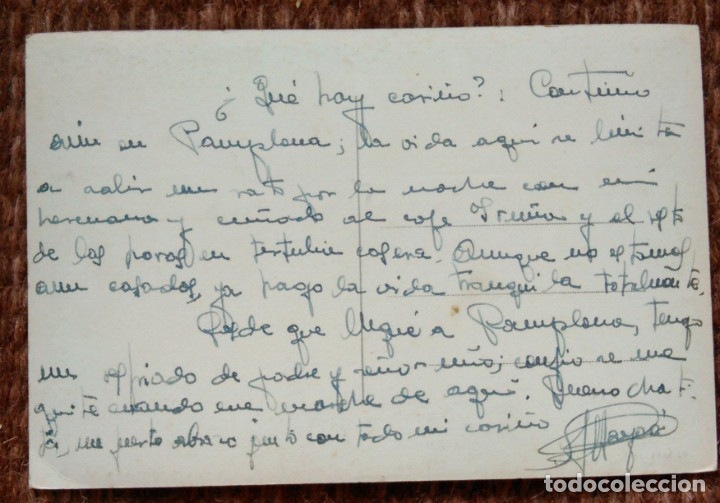 ¿Qué hay cariño?: Continúo
aún en Pamplona; la vida aquí se limita
a salir un rato por la noche con mi
hermana y cuñado al café Iruña y el resto
de las horas en tertulia casera. Aunque no estamos
aun casados, ya hago la vida tranquila totalmente.
Desde que llegué a Pamplona, tengo
un resfriado de padre y señor mío; confío se me
quite cuando me marche de aquí. Bueno chati-
ja, un fuerte abrazo junto con todo mi cariño
todocoleccion
todocoleccion.net